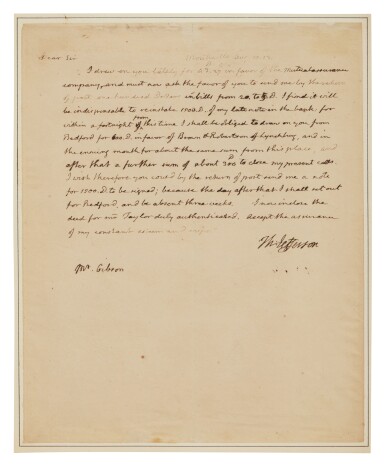 Dear Sir
I drew on you lately for in favor of the Mutual assurance
company, and must now ask the favor of you to send me by the return
of post one hundred Dollars in bills from to D. I find it will
be indispensable to reinstate 1500.D. of my late note in the bank. for
within a fortnight from this time I shall be obliged to draw on you from
Bedford for D. in favor of Brown & Robertson of Lynchburg, and in
the ensuing month for about the same sum from this place, and
after that a further sum of about 700 D to close my present calls.
I wish therefore you could by the return of post send me a note
for 1500.D. to be signed; because the day after that I shall set out
for Bedford, and be absent three weeks. I now inclose the
deed for Taylor duly authenticated. Accept the assurance
of my constant esteem and
Th: Jefferson
Mr. Gibson